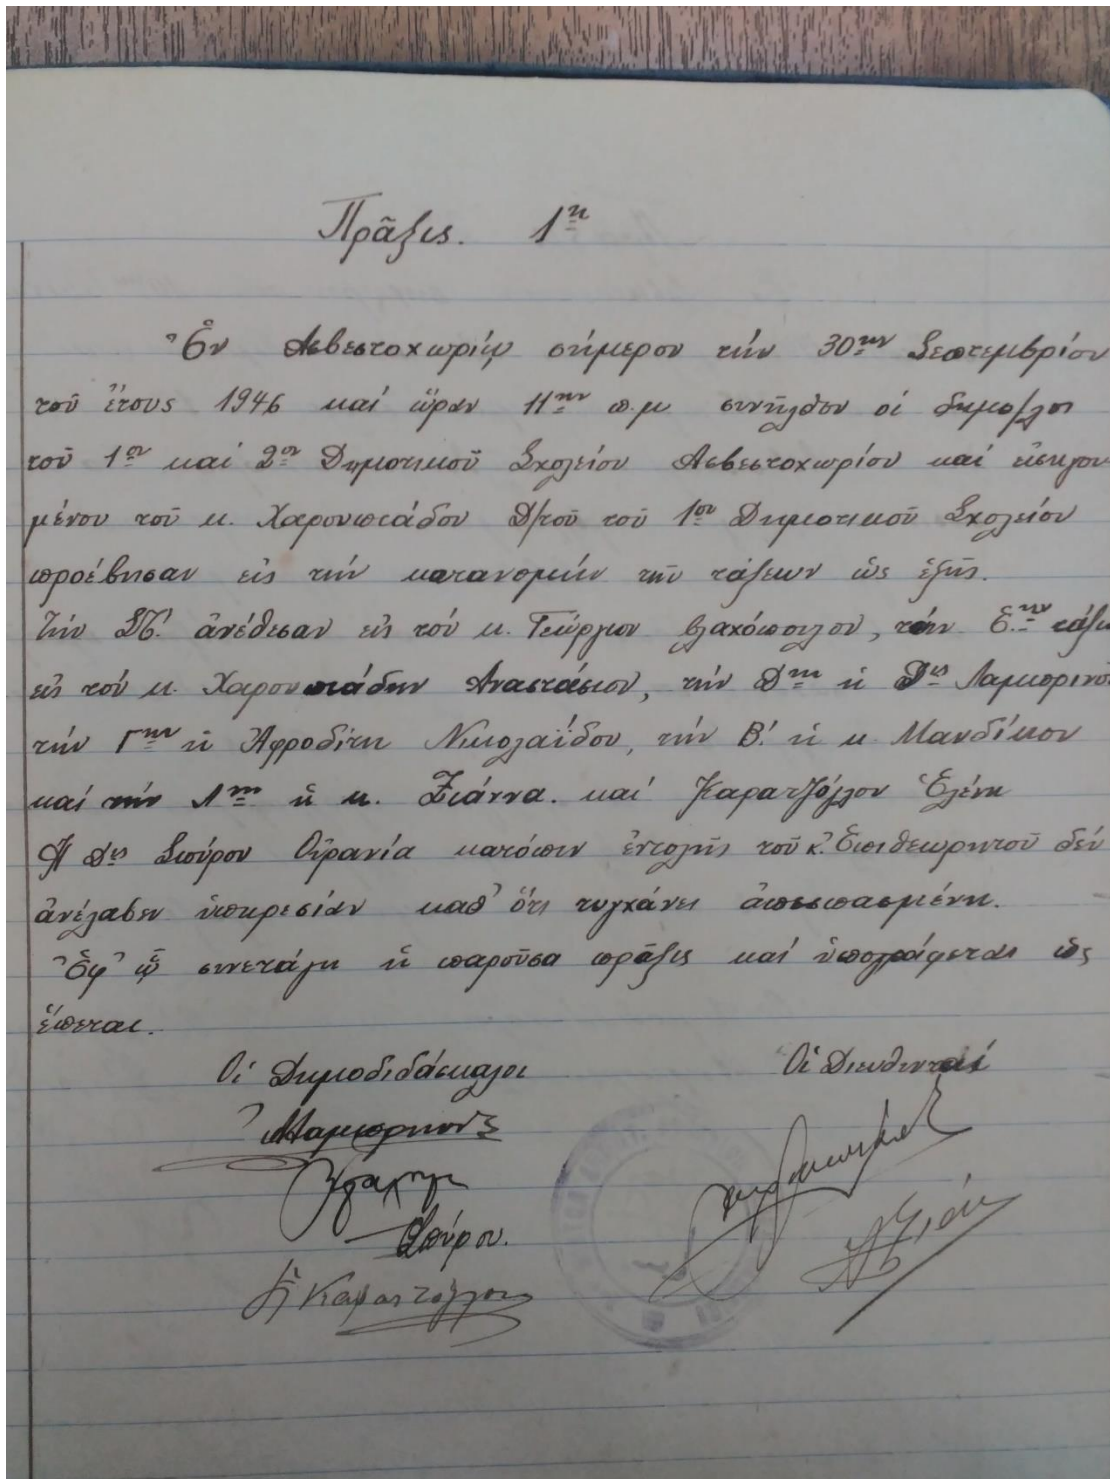 Πρᾶξις. 1η
Ἐν Ἀσβεστοχωρίῳ σήμερον τήν 30ην Σεπτεμβρίου
τοῦ ἔτους 1946 καί ὥραν 11ην π.μ. συνῆλθον οἱ δημο/λοι
τοῦ 1ου καί 2ου Δημοτικοῦ Σχολείου Ἀσβεστοχωρίου καί εἰσηγου
μένου τοῦ κ. Χαρουπιάδου Δ/τοῦ τοῦ 1ου Δημοτικοῦ Σχολείου
προέβησαν εἰς τήν κατανομήν τῆν τάξεων ὡς ἑξῆς.
Τήν ΣΤ'. ἀνέθεσαν εἰς τόν κ. Γεώργιον Βλαχόπουλον, τήν Ε.ην τάξιν
εἰς τόν κ. Χαρουπιάδην Ἀναστάσιον, τήν Δην ἡ Δις Λαμπρινοῦ
τήν Γην ἡ Ἀφροδίτη Νικολαΐδου, τήν Β'. ἡ κ. Μανδίκου
καί τήν Αην ἡ κ. Ζιάννα. καί Καρατζόγλου Ἑλένη
Ἡ Δις Σπύρου Οὐρανία κατόπιν ἐντολῆς τοῦ κ. Ἐπιθεωρητοῦ δέν
ἀνέλαβεν ὑπηρεσίαν καθ' ὅτι τυγχάνει ἀποσπασμένη.
Ἐφ' ᾧ συνετάγη ἡ παροῦσα πρᾶξις καί ὑπογράφεται ὡς
ἕπεται.
Οἱ Δημοδιδάσκαλοι Οἱ Διευθυνταί
Σπύρου.